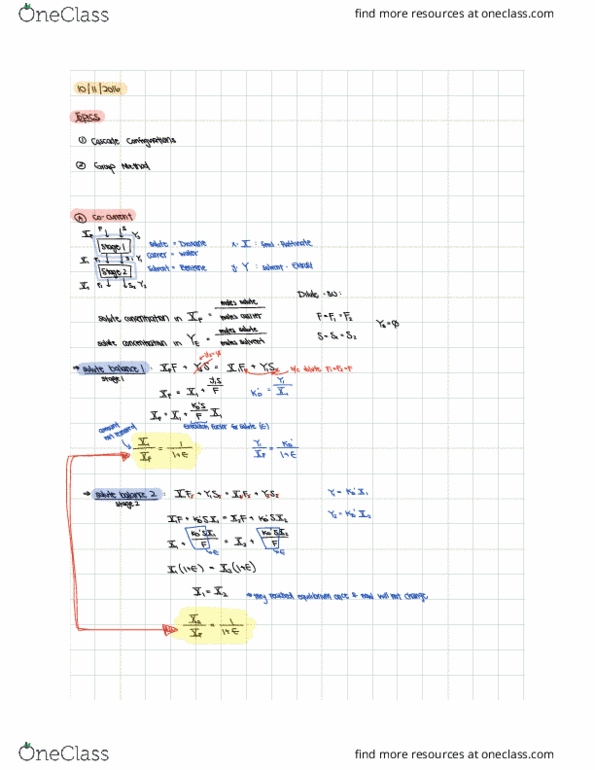 OneClass
find more resources at oneclass.com
10/11/2016
Topics
① Cascade Configurations
② Group Method
Ⓐ Co-current
X_F F S Y_S
Stage 1
X_1 F_1 S_1 Y_1
Stage 2
X_2 F_2 S_2 Y_2
Solute = Dioxane
Carrier = water
Solvent = Benzene
x - X : Feed - Raffinate
y - Y : Solvent - Extract
Dilute - so:
Solute concentration in X_F = moles solute / moles carrier
F = F_1 = F_2
Solute concentration in Y_E = moles solute / moles solvent
S = S_1 = S_2
Y_S = ∅
→ Solute balance 1 : X_F F + Y_S S = X_1 F_1 + Y_1 S_1 b/c dilute F_1=F_2=F
stage 1
X_F = X_1 + Y_1 S / F
K_D' = Y_1 / X_1
X_F = X_1 + K_D' S / F X_1
Extraction Factor for solute (E)
amount not removed
X_1 / X_F = 1 / 1+E
Y_1 / X_F = K_D' / 1+E
→ Solute balance 2 : X_1 F_1 + Y_1 S_1 = X_2 F_2 + Y_2 S_2
Y_1 = K_D' X_1
stage 2
X_1 F + K_D' S X_1 = X_2 F + K_D' S X_2
Y_2 = K_D' X_2
X_1 + K_D' S X_1 / F = X_2 + K_D' S X_2 / F
→E →E
X_1 (1+E) = X_2 (1+E)
X_1 = X_2 → they reached equilibrium once & now will not change
X_2 / X_F = 1 / 1+E
OneClass
find more resources at oneclass.com